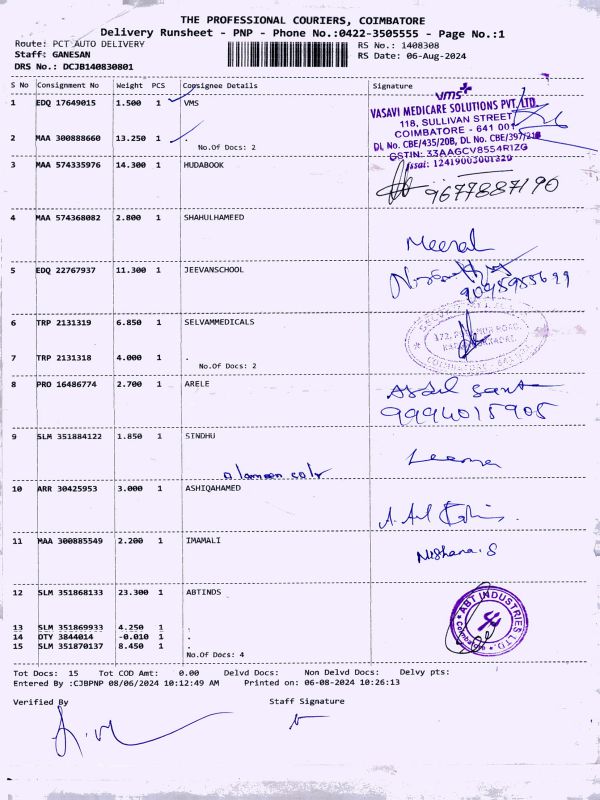 THE PROFESSIONAL COURIERS, COIMBATORE
Delivery Runsheet - PNP - Phone No.:0422-3505555 - Page No.:1
Route: PCT AUTO DELIVERY
Staff: GANESAN
DRS No.: DCJB140830801
RS No.: 1408308
RS Date: 06-Aug-2024
S No Consignment No Weight PCS Consignee Details Signature
1 EDQ 17649015 1.500 1 VMS
vms
VASAVI MEDICARE SOLUTIONS PVT. LTD.
118, SULLIVAN STREET
COIMBATORE - 641 001
DL No. CBE/435/20B, DL No. CBE/397/21B
GSTIN: 33AAGCV8554R1ZG
fssai: 12419003001320
2 MAA 300888660 13.250 1 .
No.Of Docs: 2
3 MAA 574335976 14.300 1 HUDABOOK
9677887190
4 MAA 574368082 2.800 1 SHAHULHAMEED
Meeral
5 EDQ 22767937 11.300 1 JEEVANSCHOOL
6 TRP 2131319 6.850 1 SELVAMMEDICALS
7 TRP 2131318 4.000 1 .
No.Of Docs: 2
8 PRO 16486774 2.700 1 ARELE
9994015905
9 SLM 351884122 1.850 1 SINDHU
10 ARR 30425953 3.000 1 ASHIQAHAMED
11 MAA 300885549 2.200 1 IMAMALI
Nishana.S
12 SLM 351868133 23.300 1 ABTINDS
ABT INDUSTRIES LTD.
Coimbatore
13 SLM 351869933 4.250 1 .
14 OTY 3844014 -0.010 1 .
15 SLM 351870137 8.450 1 .
No.Of Docs: 4
Tot Docs: 15 Tot COD Amt: 0.00 Delvd Docs: Non Delvd Docs: Delvy pts:
Entered By :CJBPNP 08/06/2024 10:12:49 AM Printed on: 06-08-2024 10:26:13
Verified By Staff Signature